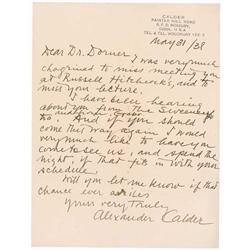 CALDER
PAINTER HILL ROAD
R.F.D. ROXBURY
CONN. U.S.A.
TEL. & TEL. WOODBURY 122-3
May 31/38
Dear Dr. Dorner
I was very much
chagrined to miss meeting you
at Russell Hitchcocks, and to
miss your lecture.
I have been hearing
about you from the Sweeneys
too. And if you should
come this way again I would
very much like to have you
come to see us, and spend the
night, if that fits in with your
schedule.
Will you let me know if that
chance ever arises
Yours very truly
Alexander Calder